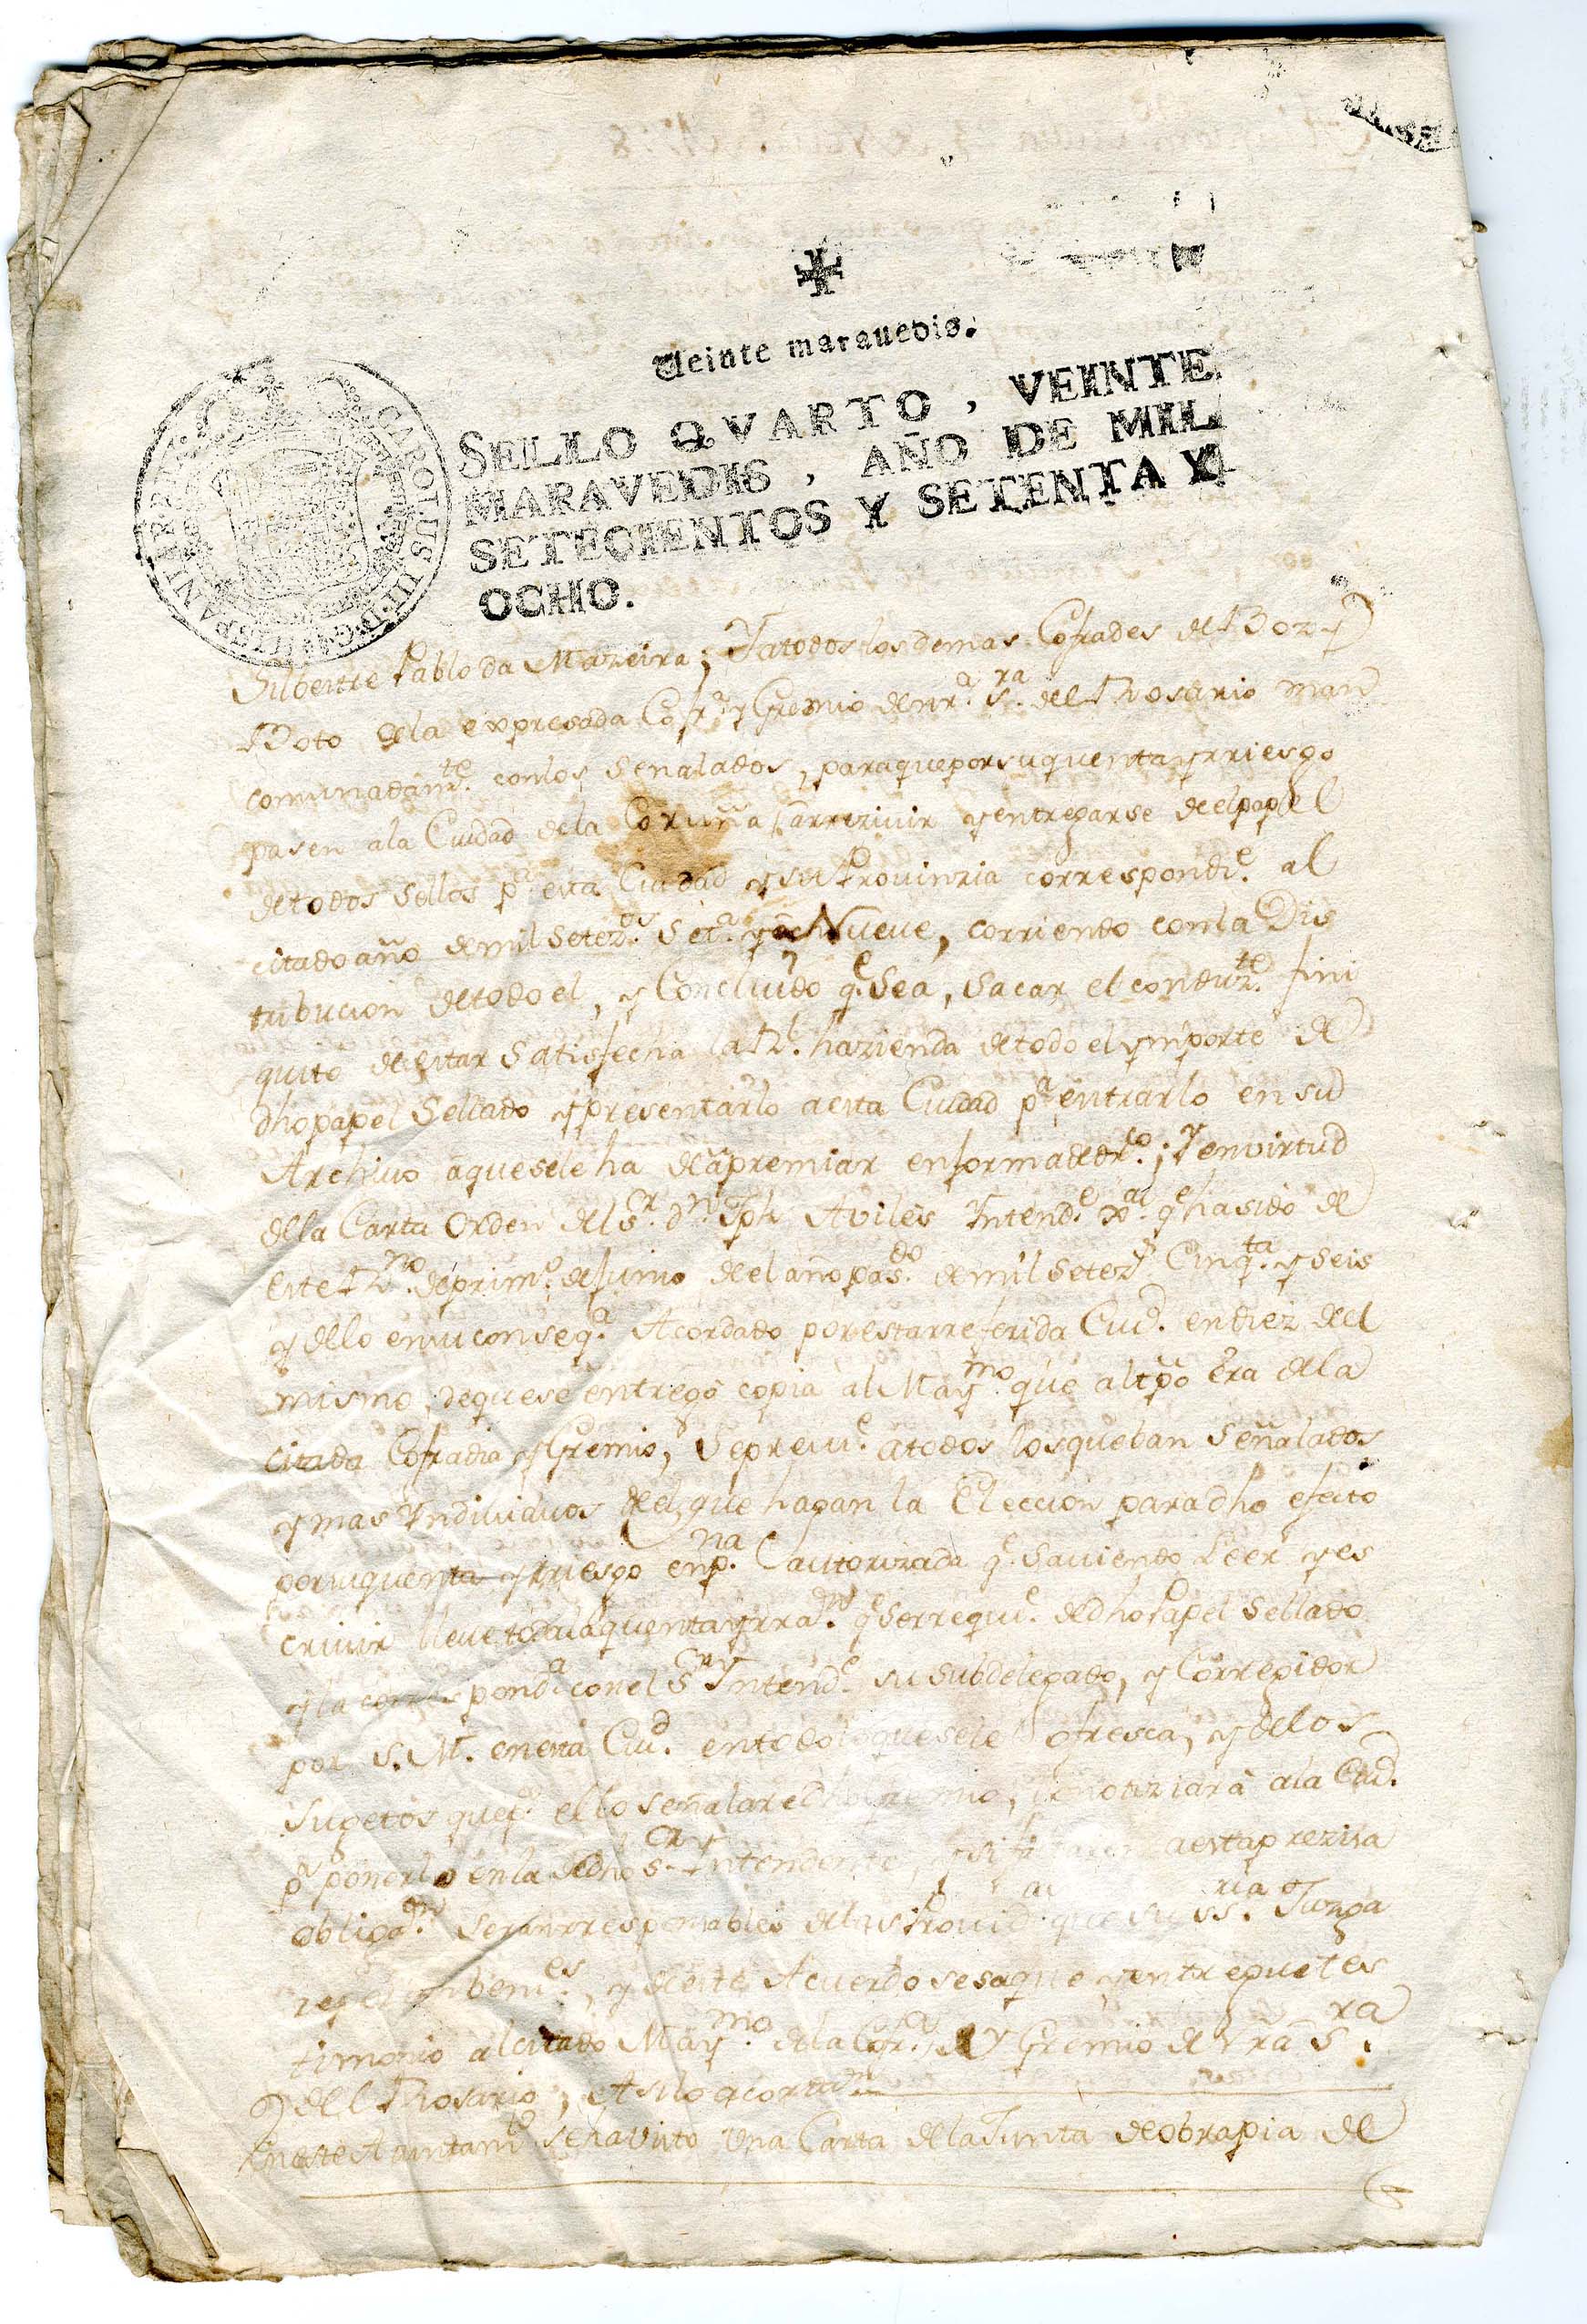 Veinte maravedis.
SELLO QVARTO, VEINTE
MARAVEDIS, AÑO DE MIL
SETECIENTOS Y SETENTA Y
OCHO.
CAROLUS III D G HISPANIAR
Silbestre Pablo da Mazeira; Y atodos los demas Cofrades de Boz y
Boto de la expresada Cofr.ª y Gremio de nr.ª S.ra del Rosario man
comunadam.te con los Señalados, para que por su quenta y rriesgo
pasen a la Ciudad de la Coruña arrezivir y entregarse de el papel
de todos Sellos p.ª esta Ciudad y su Provinzia correspond.e al
citado año de mil Setez.os Set.ª y Nueve, corriendo con la Dis
tribucion de todo el, y Concluido q.e Sea, Sacar el conduz.te fini
quito de estar Satisfecha la R.l hazienda de todo el ymporte de
dho papel Sellado y presentarlo a esta Ciudad p.ª entrarlo en su
Archivo a que sele ha de apremiar en forma de dr.to; Y en virtud
de la Carta Orden del S.or d.n Jph Aviles Yntend.e q.e ha sido de
este R.no de prim.o de Junio de el año pas.do de mil Setez.s Cinq.ta y Seis
y de lo en su conseq.ª Acordado por esta rreferida Ciud. en diez del
mismo, de que se entregó copia al May.mo que altpo era de la
citada Cofradia y Gremio, Se preui.e a todos los que ban Señalados
y mas Yndiuiduos de el, que hagan la Eleccion para dho efecto
por su quenta y rriesgo en p.na autorizada q.e Saviendo Leer y es
crivir lleve toda la quenta y rra.n q.e Se rrequi.e de dho Papel Sellado
y la correspond.ª con el S.or Yntend.e su Subdelegado, y Corregidor
por S. M. en esta Ciud. en todo lo que se le ofresca, y de los
Sugetos que p.ª ello señalare dho Gremio, notiziará a la Ciud.
p.ª ponerlo en la de dho S.or Yntendente, y si faltaren a esta preziza
obliga.n Seran rresponsables de las Provid.as que su S.ria Juzga
re por combeni.es, y de este Acuerdo se saque y entregue tes
timonio al citado May.mo de la Cofr.ª y Gremio de nrã S.ra
del Rosario, Asi lo acordar.n
En este Aiuntam.to se ha visto Una Carta de la Junta de obrapia de